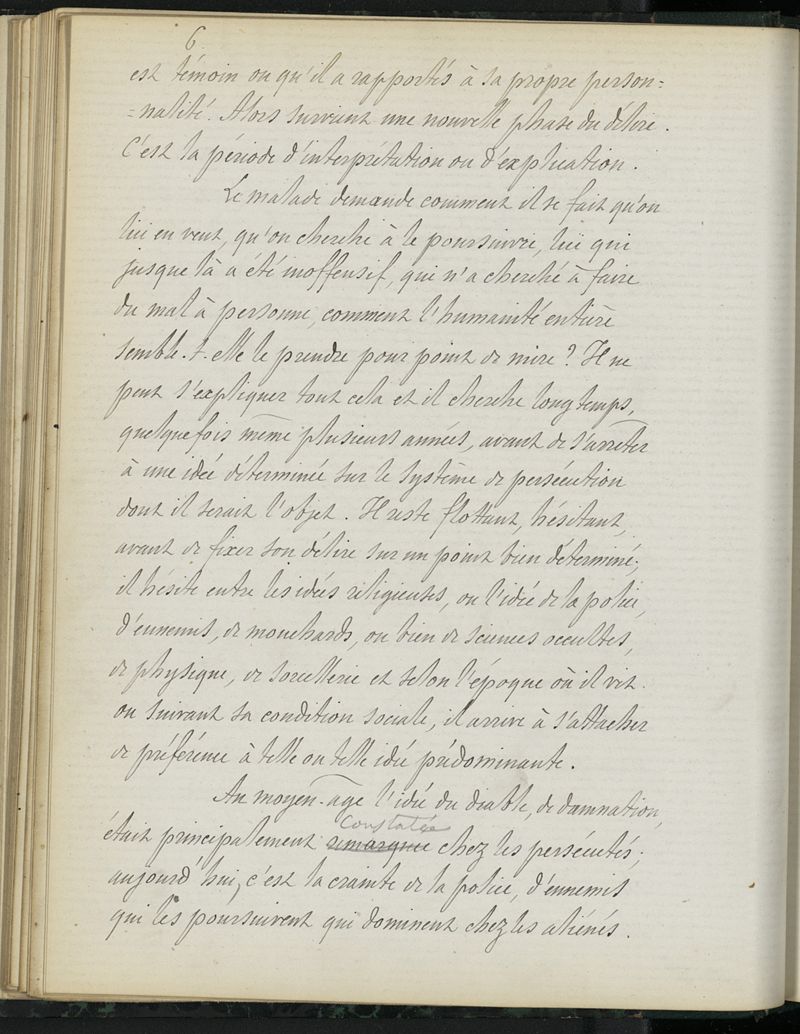 6
est témoin ou qu'il a rapportés à sa propre person=
=nalité. Alors survient une nouvelle phase du délire.
C'est la période d'interprétation ou d'explication.
Le malade demande comment il se fait qu'on
lui en veut, qu'on cherche à le poursuivre, lui qui
jusque là a été inoffensif, qui n'a cherché à faire
du mal à personne, comment l'humanité entière
semble-t-elle le prendre pour point de mire? Il ne
peut s'expliquer tout cela et il cherche longtemps,
quelquefois même plusieurs années, avant de s'arrêter
à une idée déterminée sur le système de persécution
dont il serait l'objet. Il reste flottant, hésitant,
avant de fixer son délire sur un point bien déterminé;
il hésite entre les idées religieuses, ou l'idée de la police,
d'ennemis, de mouchards, ou bien de sciences occultes,
de physique, de sorcellerie et selon l'époque où il vit
ou suivant sa condition sociale, il arrive à s'attacher
de préférence à telle ou telle idée prédominante.
Au moyen-âge l'idée du diable, de damnation,
constatée
était principalement remarquée chez les persécutés;
aujourd'hui, c'est la crainte de la police, d'ennemis
qui les poursuivent qui dominent chez les aliénés.